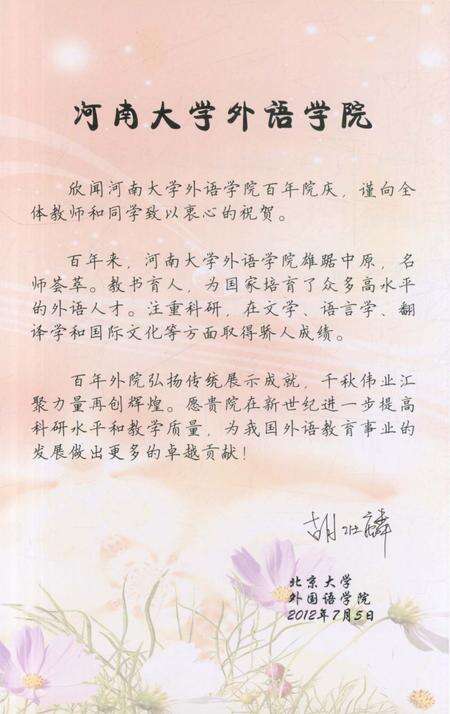 河南大学外语学院
欣闻河南大学外语学院百年院庆，谨向全
体教师和同学致以衷心的祝贺。
百年来，河南大学外语学院雄踞中原，名
师荟萃。教书育人，为国家培育了众多高水平
的外语人才。注重科研，在文学、语言学、翻
译学和国际文化等方面取得骄人成绩。
百年外院弘扬传统展示成就，千秋伟业汇
聚力量再创辉煌。愿贵院在新世纪进一步提高
科研水平和教学质量，为我国外语教育事业的
发展做出更多的卓越贡献！
胡壮麟
北京大学
外国语学院
2012年7月5日